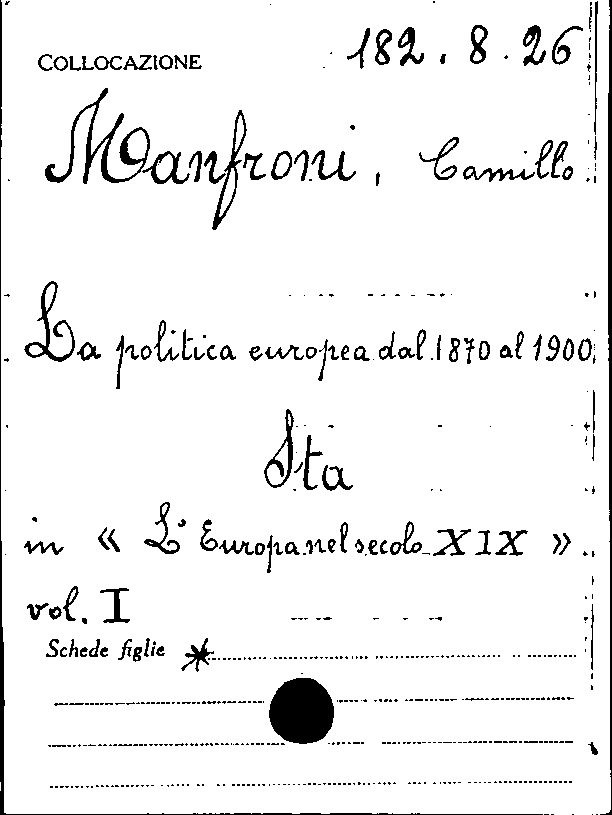 COLLOCAZIONE 182.8.26
Manfroni, Camillo
La politica europea dal 1870 al 1900
Sta
in « L'Europa nel secolo XIX »
vol. I
Schede figlie *